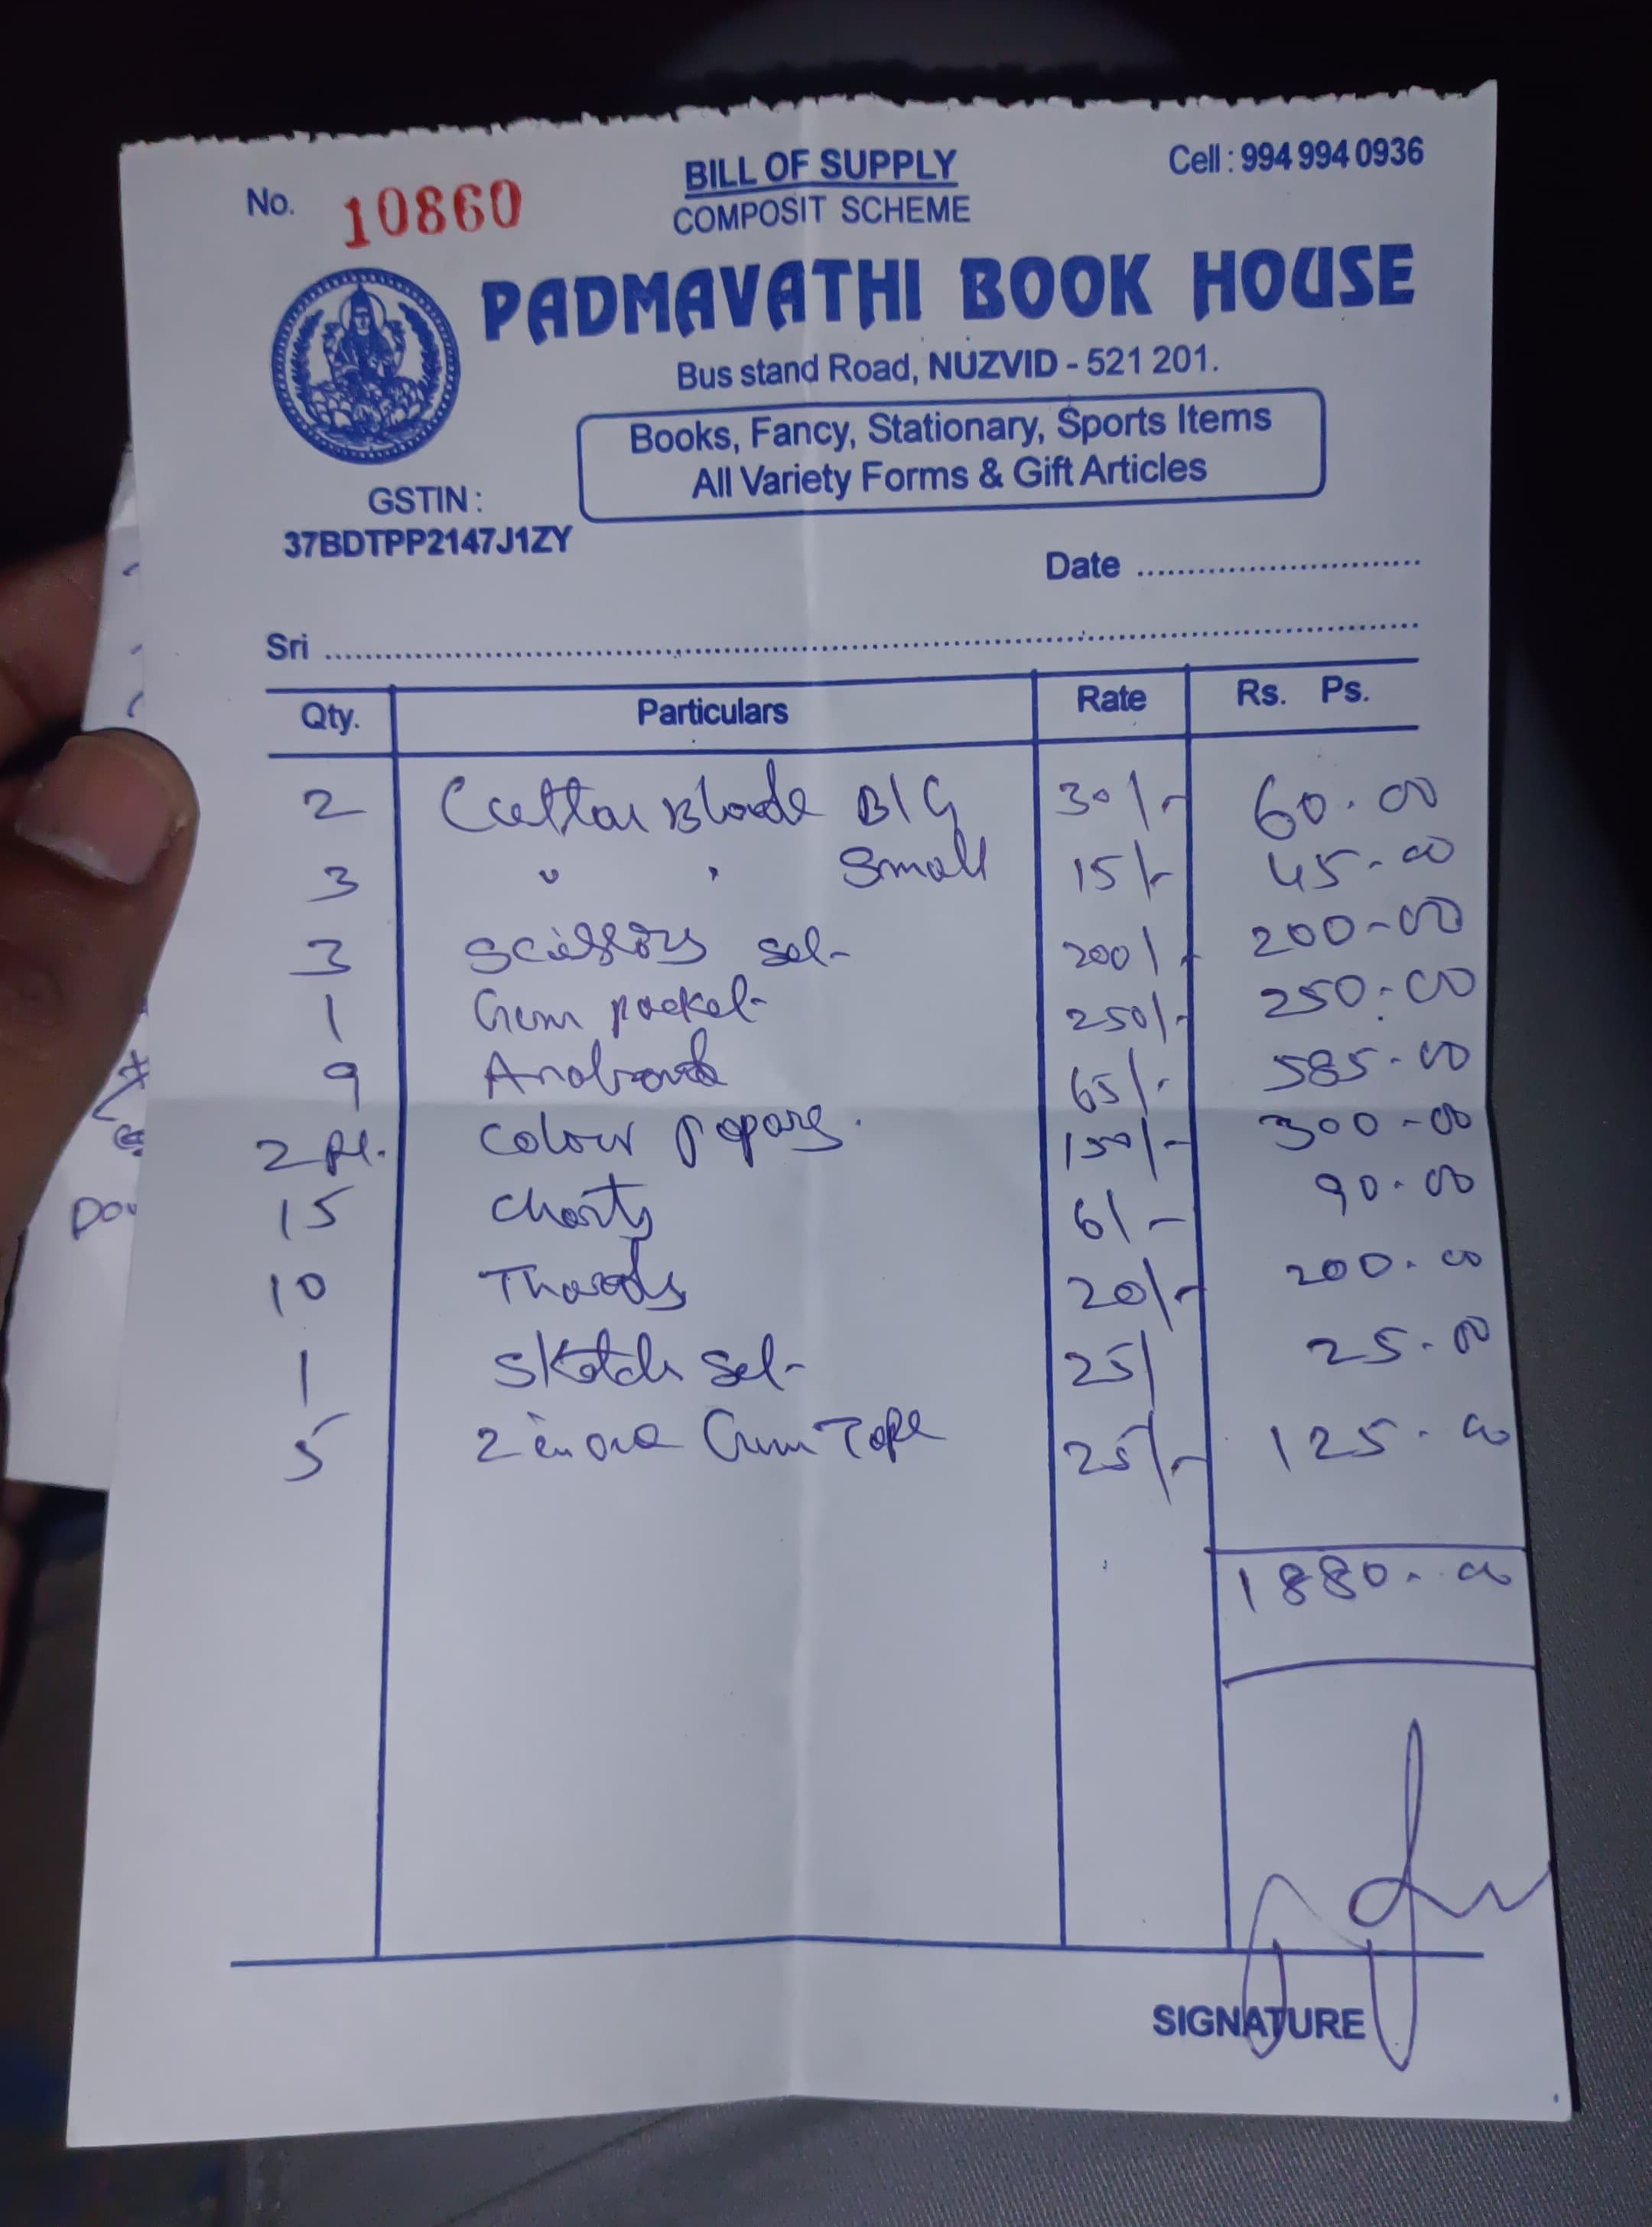 No. 10860
BILL OF SUPPLY
COMPOSIT SCHEME
Cell : 994 994 0936
PADMAVATHI BOOK HOUSE
Bus stand Road, NUZVID - 521 201.
Books, Fancy, Stationary, Sports Items
All Variety Forms & Gift Articles
GSTIN :
37BDTPP2147J1ZY
Date
Sri
Qty. Particulars Rate Rs. Ps.
2 Cuttar Blade BIG 30/- 60.00
3 " " Small 15/- 45-00
3 Scissors set- 200/- 200-00
1 Gum packet- 250/- 250-00
9 65/- 585-00
2 Pt. Colour papars 150/- 300-00
15 Charts 6/- 90.00
10 Thareds 20/- 200.00
1 Sketch set- 25/ 25.00
5 2 in one Gum Tape 25/- 125.00
1880.00
SIGNATURE